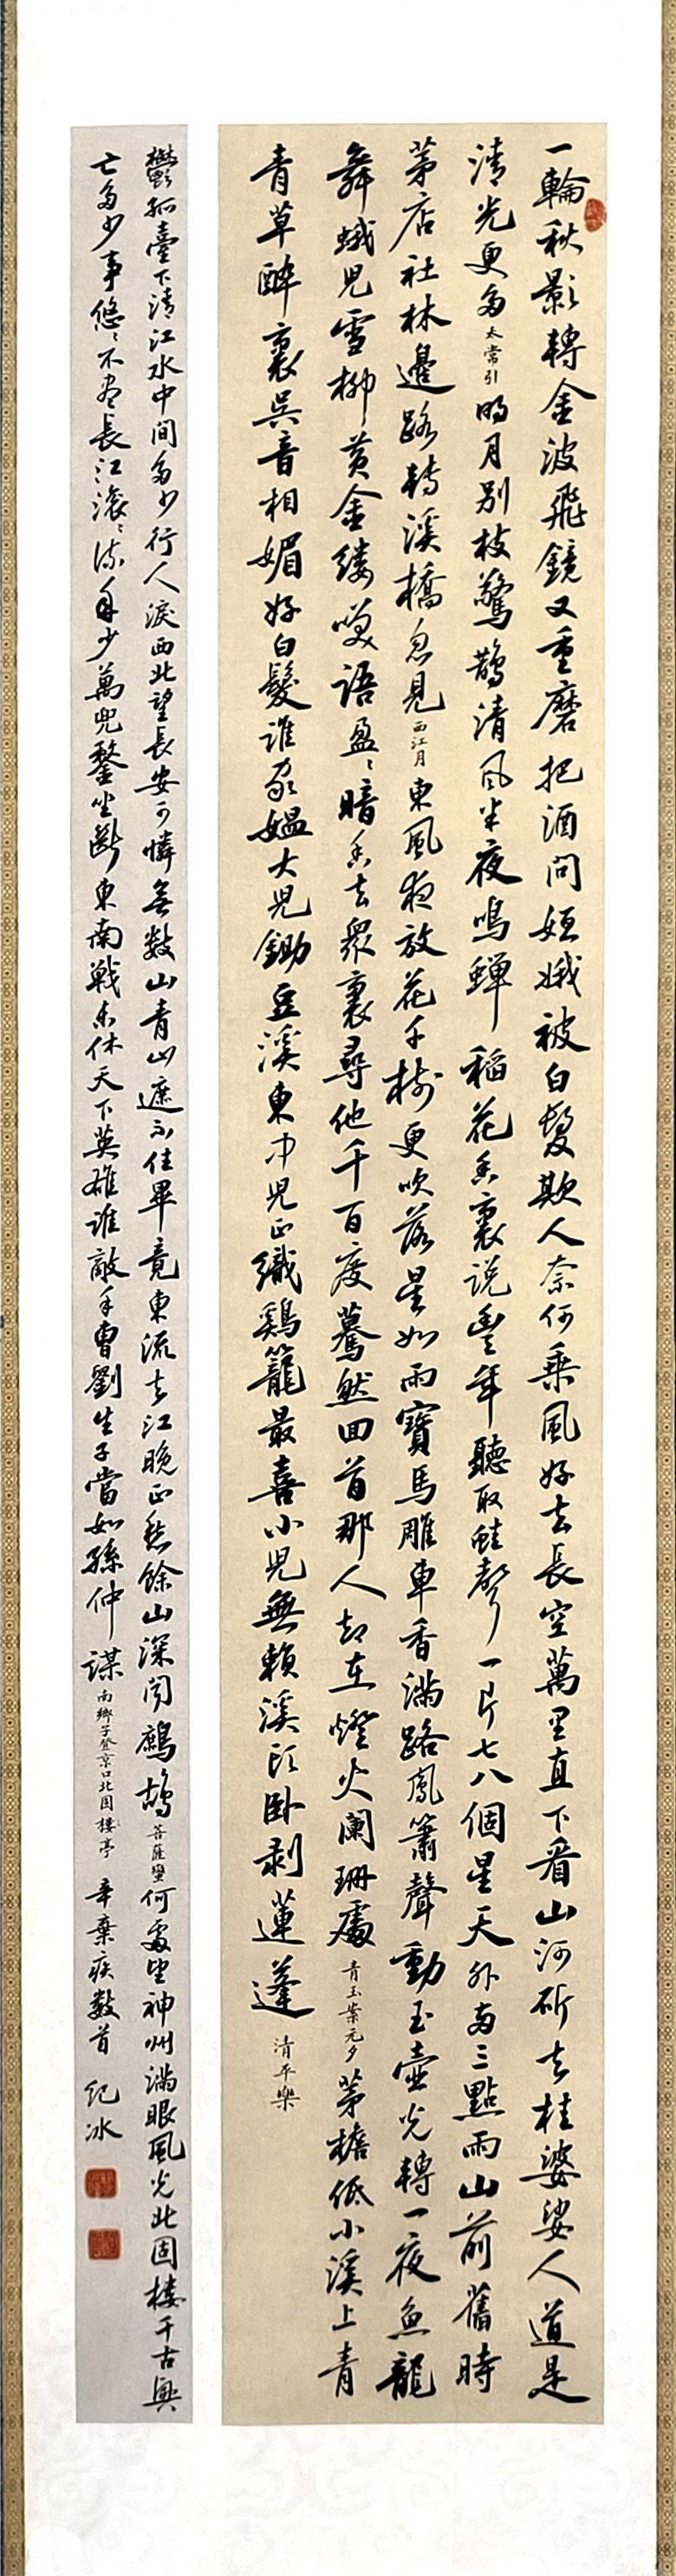 一輪秋影轉金波飛鏡又重磨把酒問姮娥被白髮欺人奈何乘風好去長空萬里直下看山河斫去桂婆娑人道是
清光更多太常引明月別枝驚鵲清風半夜鳴蟬稻花香裏説豐年聽取蛙聲一片七八個星天外兩三點雨山前舊時
茅店社林邊路轉溪橋忽見西江月東風夜放花千樹更吹落星如雨寶馬雕車香滿路鳳簫聲動玉壺光轉一夜魚龍
舞蛾兒雪柳黃金縷笑語盈盈暗香去衆裏尋他千百度驀然回首那人却在燈火闌珊處青玉案元夕茅檐低小溪上青
青草醉裏吳音相媚好白髮誰家媼大兒鋤豆溪東中兒正織鷄籠最喜小兒無賴溪頭卧剥蓮蓬清平樂
鬱孤臺下清江水中間多少行人淚西北望長安可憐無數山青山遮不住畢竟東流去江晚正愁餘山深聞鷓鴣菩薩蠻何處望神州滿眼風光北固樓千古興
亡多少事悠悠不盡長江滾滾流年少萬兜鍪坐斷東南戰未休天下英雄誰敵手曹劉生子當如孫仲謀南鄉子登京口北固樓亭 辛棄疾數首 紀冰